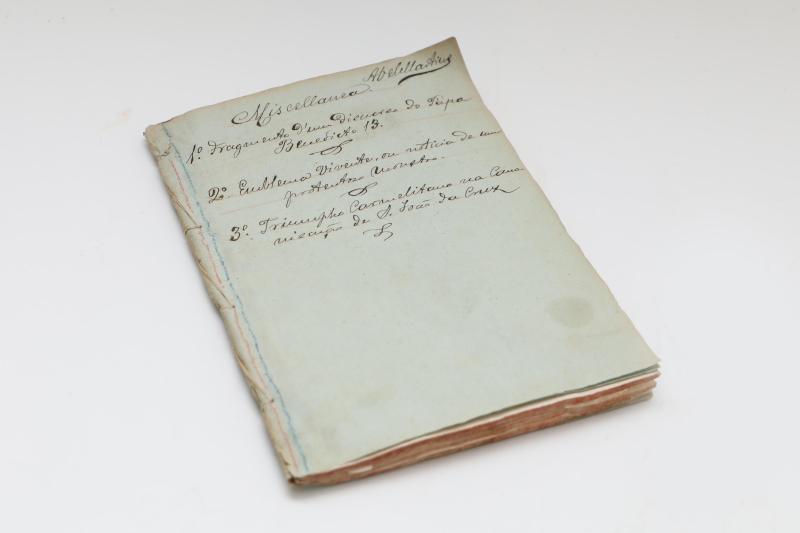 Miscellanea.
1º. Fragmento d'um Discurso do Papa
Benedicto 13.
2º. Emblema Vivente, ou noticia de um
portentozo monstro.
3º. Triumpho Carmelitano na Cano
nização de S. João da Cruz